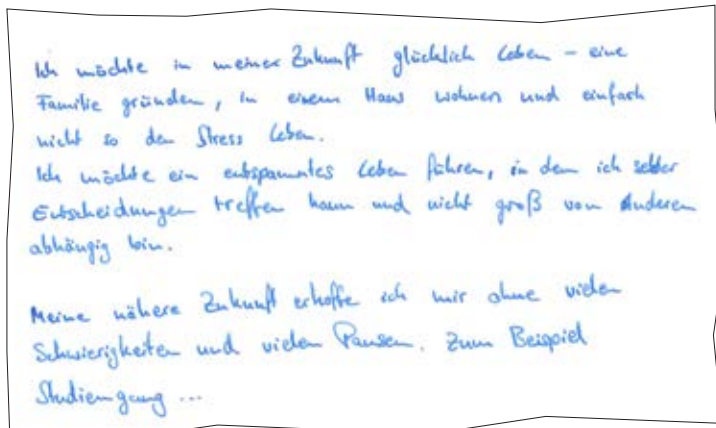 Ich möchte in meiner Zukunft glücklich leben – eine
Familie gründen, in einem Haus wohnen und einfach
nicht so den Stress leben.
Ich möchte ein entspanntes Leben führen, in dem ich selber
Entscheidungen treffen kann und nicht groß von Anderen
abhängig bin.
Meine nähere Zukunft erhoffe ich mir ohne vielen
Schwierigkeiten und vielen Pausen. Zum Beispiel
Studiengang ...